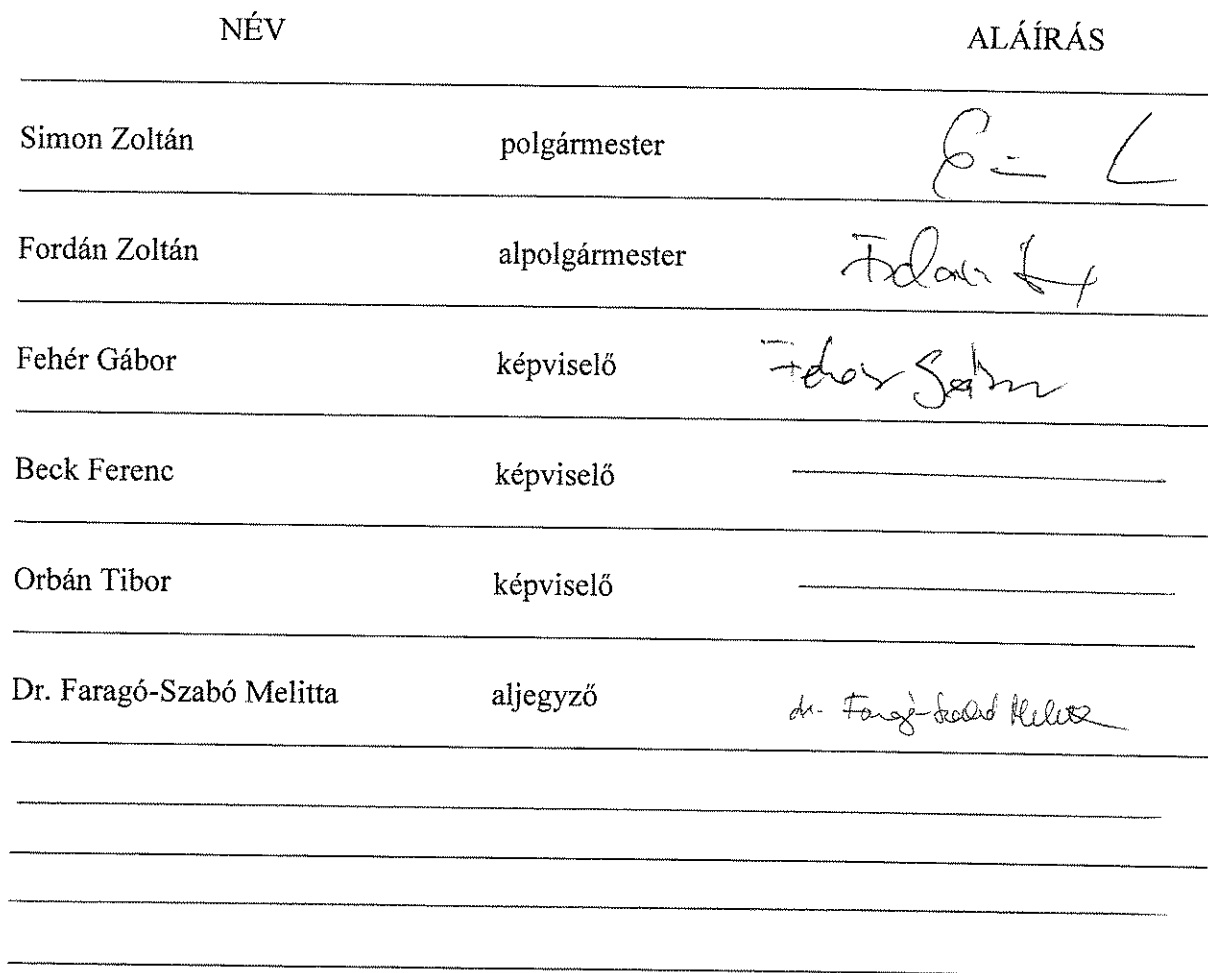 NÉV ALÁÍRÁS
Simon Zoltán polgármester
Fordán Zoltán alpolgármester
Fehér Gábor képviselő Fehér Gábor
Beck Ferenc képviselő
Orbán Tibor képviselő
Dr. Faragó-Szabó Melitta aljegyző dr. Faragó-Szabó Melitta